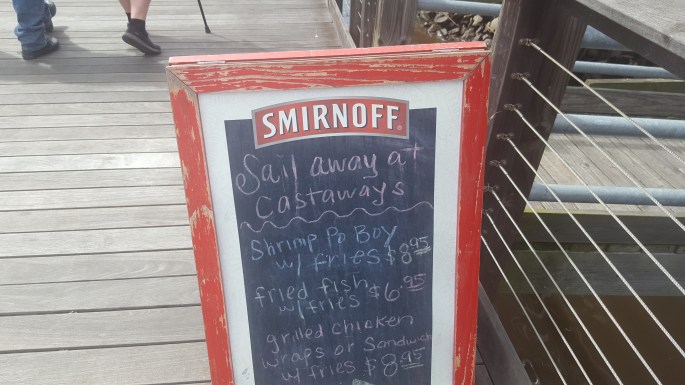 SMIRNOFF
Sail away at
Castaways
Shrimp Po Boy
w/ fries $8.95
fried fish
w/fries $6.95
grilled chicken
wraps or Sandwich
w/ fries $8.95